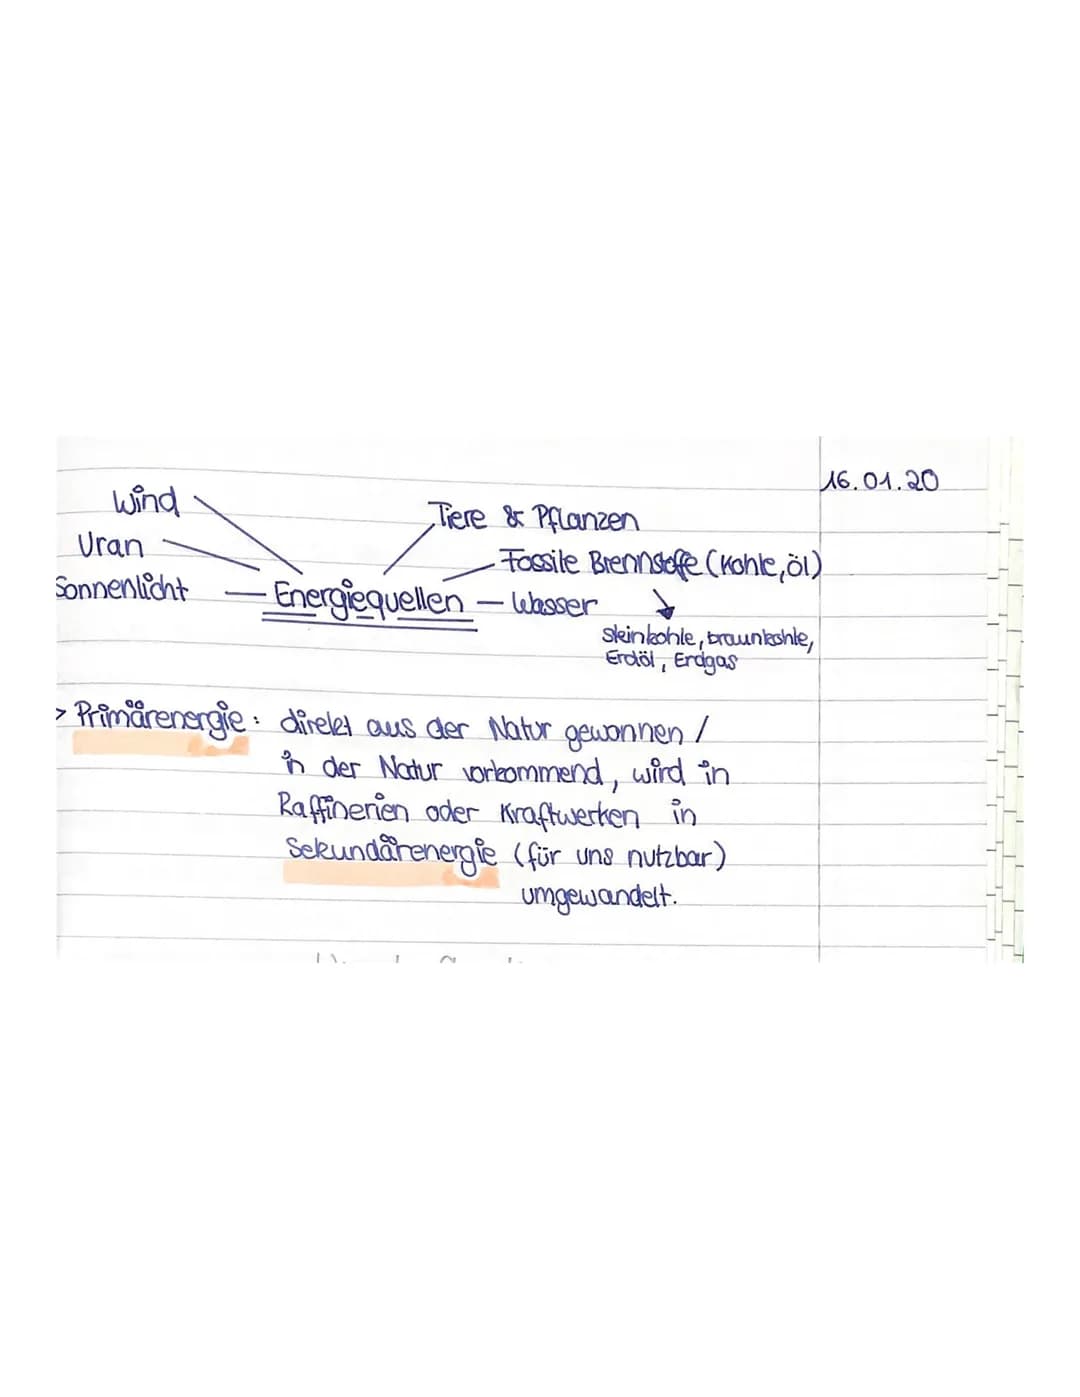 16.01.20
Wind
Tiere & Pflanzen
Uran
Fossile Brennstoffe (Kohle, Öl)
Sonnenlicht
Energiequellen
Wasser
Steinkohle, braunkohle,
Erdöl, Erdgas
> Primärenergie: direkt aus der Natur gewonnen /
in der Natur vorkommend, wird in
Raffinerien oder Kraftwerken in
Sekundärenergie (für uns nutzbar)
umgewandelt.